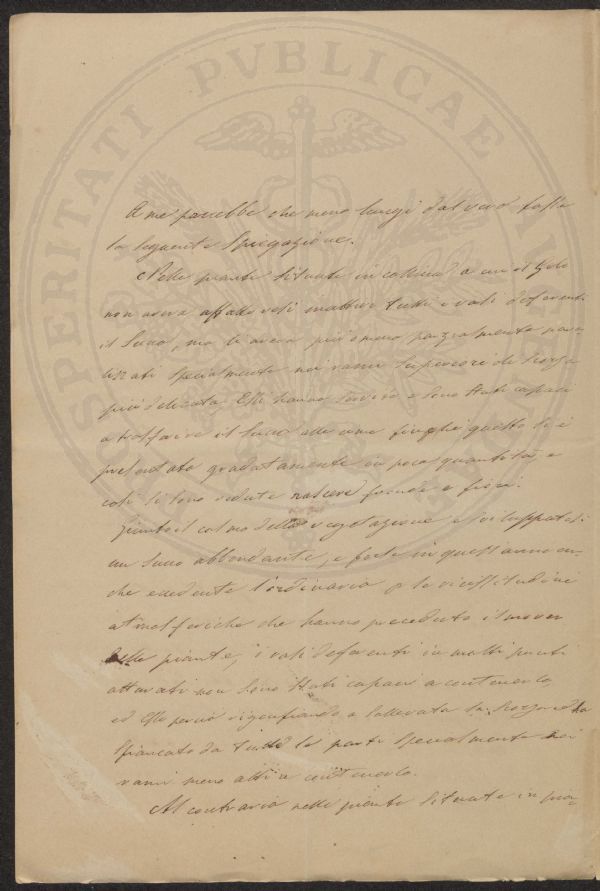 PROSPERITATI PVBLICAE AVGE
A me parrebbe che meno lungi dal vero fosse
la seguente spiegazione.
Nelle piante situate in collina a cui il gelo
non aveva affatto resi inattivi tutti i vasi deferenti
il succo, ma li aveva più o meno parzialmente para-
lizzati specialmente nei rami superiori di scorza
più delicata. Essi hanno servito e sono stati capaci
a trasfaire il succo alle cime finchè questo si è
presentato gradatamente in poca quantità, e
così si sono vedute nascere fronde e fiori.
Giunto il colmo della vegetazione e sviluppatosi
un succo abbondante, e forse in quest'anno an-
che eccedente l'ordinario p le vicissitudini
atmosferiche che hanno preceduto il mover
delle piante, i vasi deferenti in molti punti
otturati non sono stati capaci a contenerlo,
ed esso perciò rigonfiando, a sollevata la scorza ed ha
spiancato da tutte le parti specialmente nei
rami meno atti a contenerlo.
Al contrario nelle piante situate in pia-